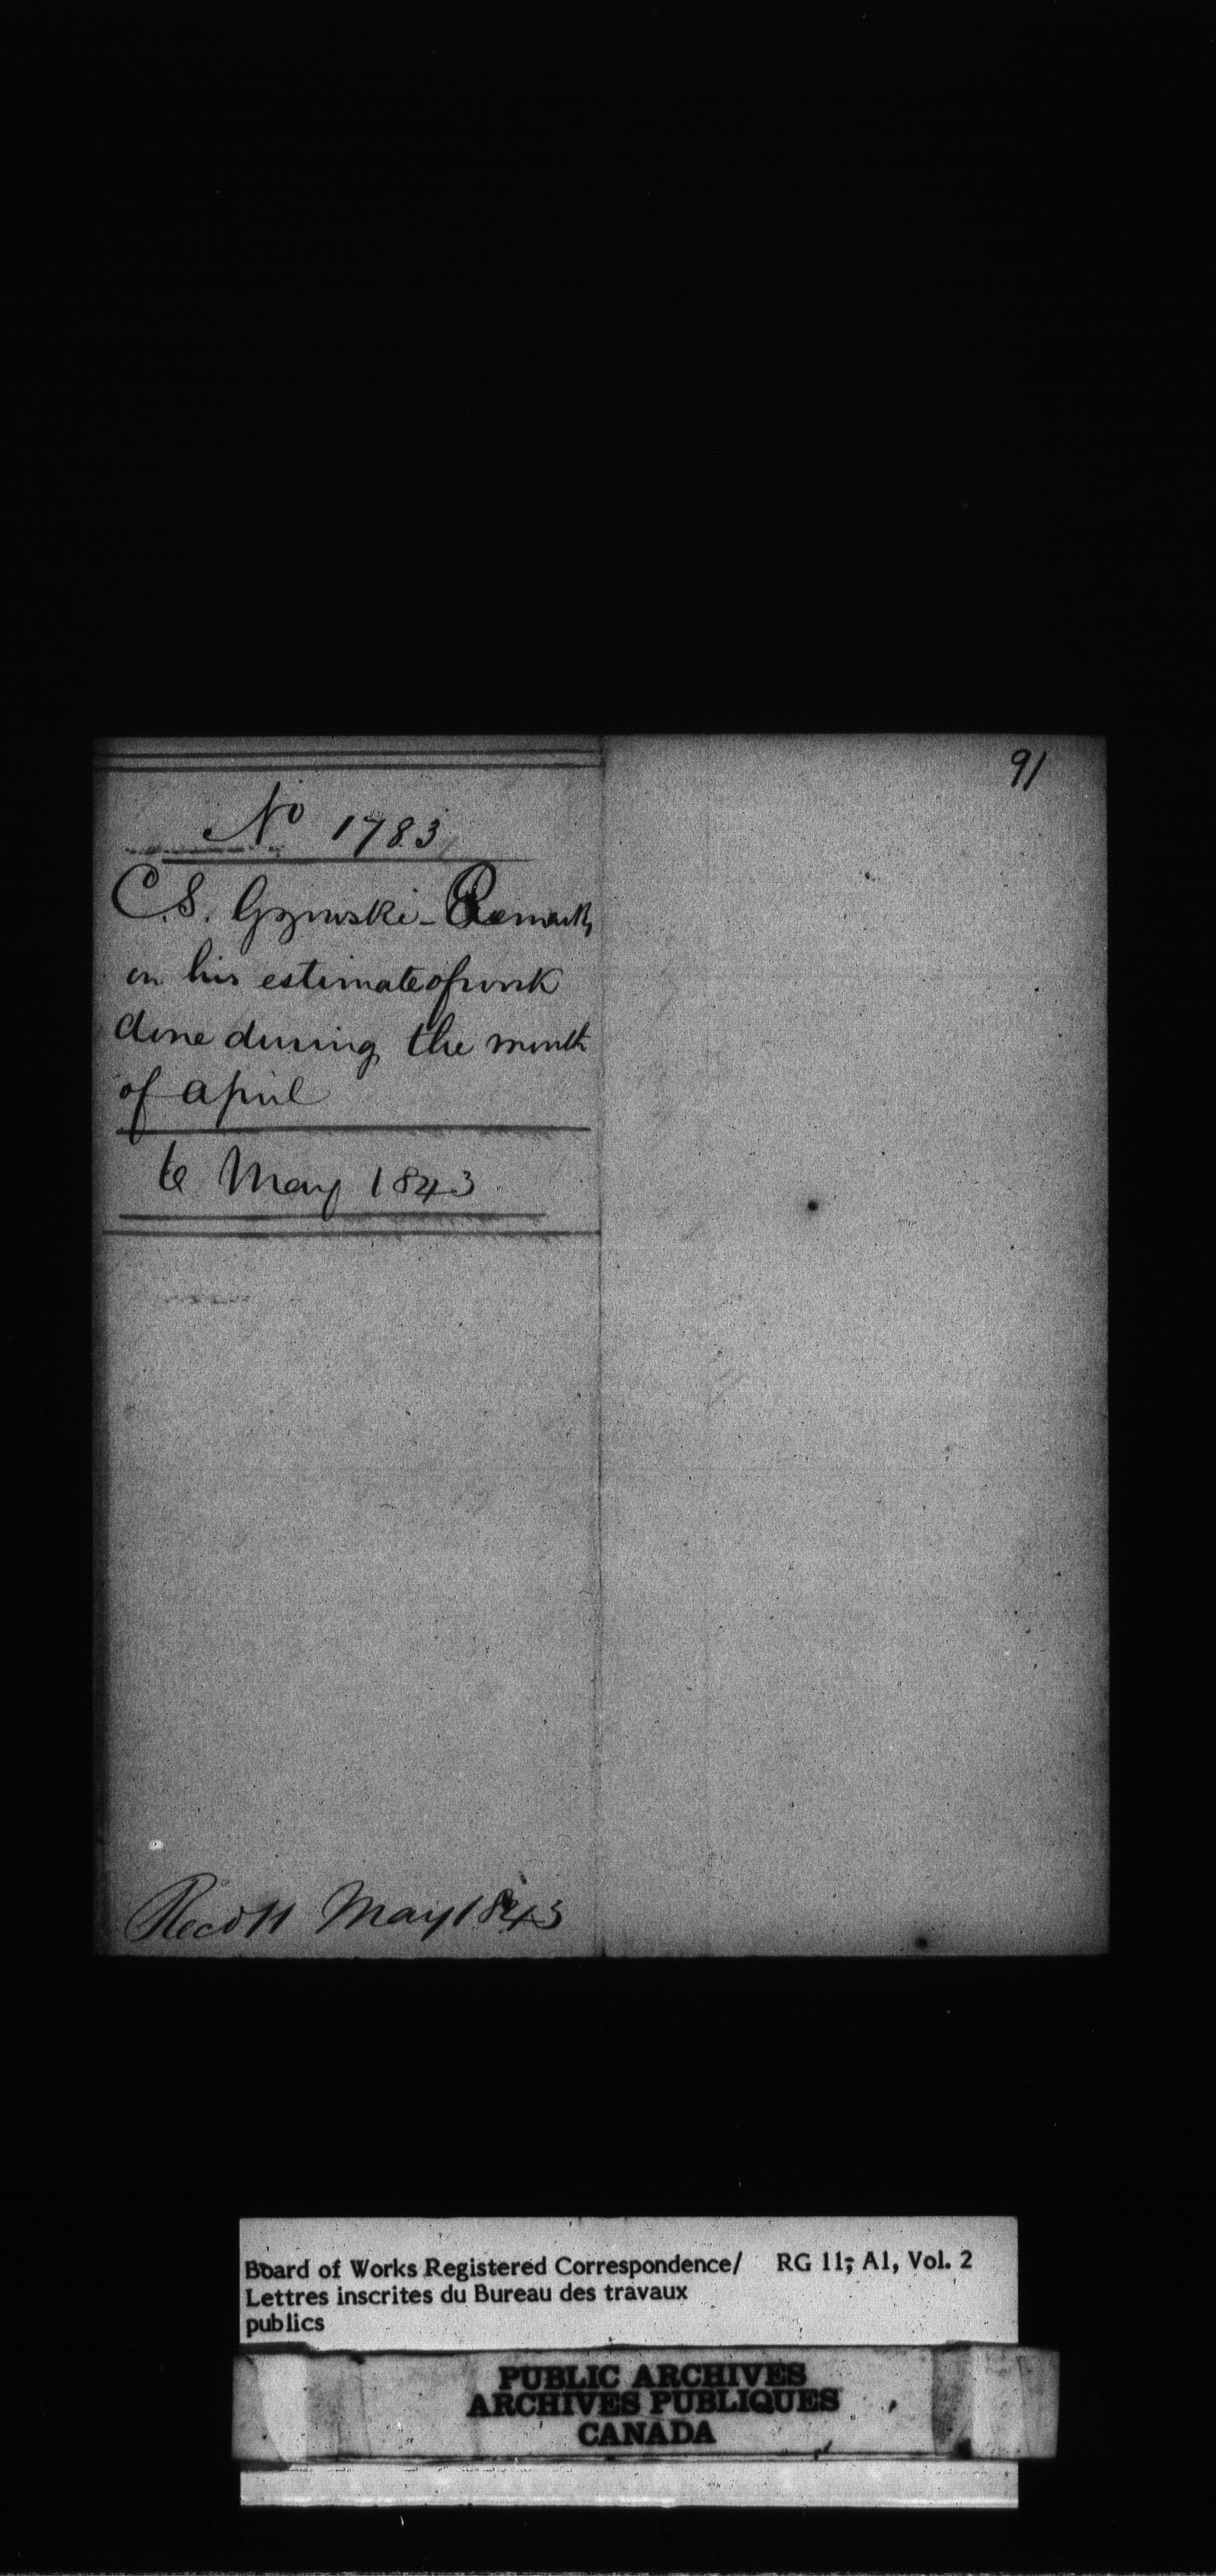 91
No 1783
C. S. Gzowski - Remarks
on his estimate of work
done during the month
of april
6 May 1843
Recd 11 May 1843
Board of Works Registered Correspondence/ RG 11, A1, Vol. 2
Lettres inscrites du Bureau des travaux
publics
PUBLIC ARCHIVES
ARCHIVES PUBLIQUES
CANADA